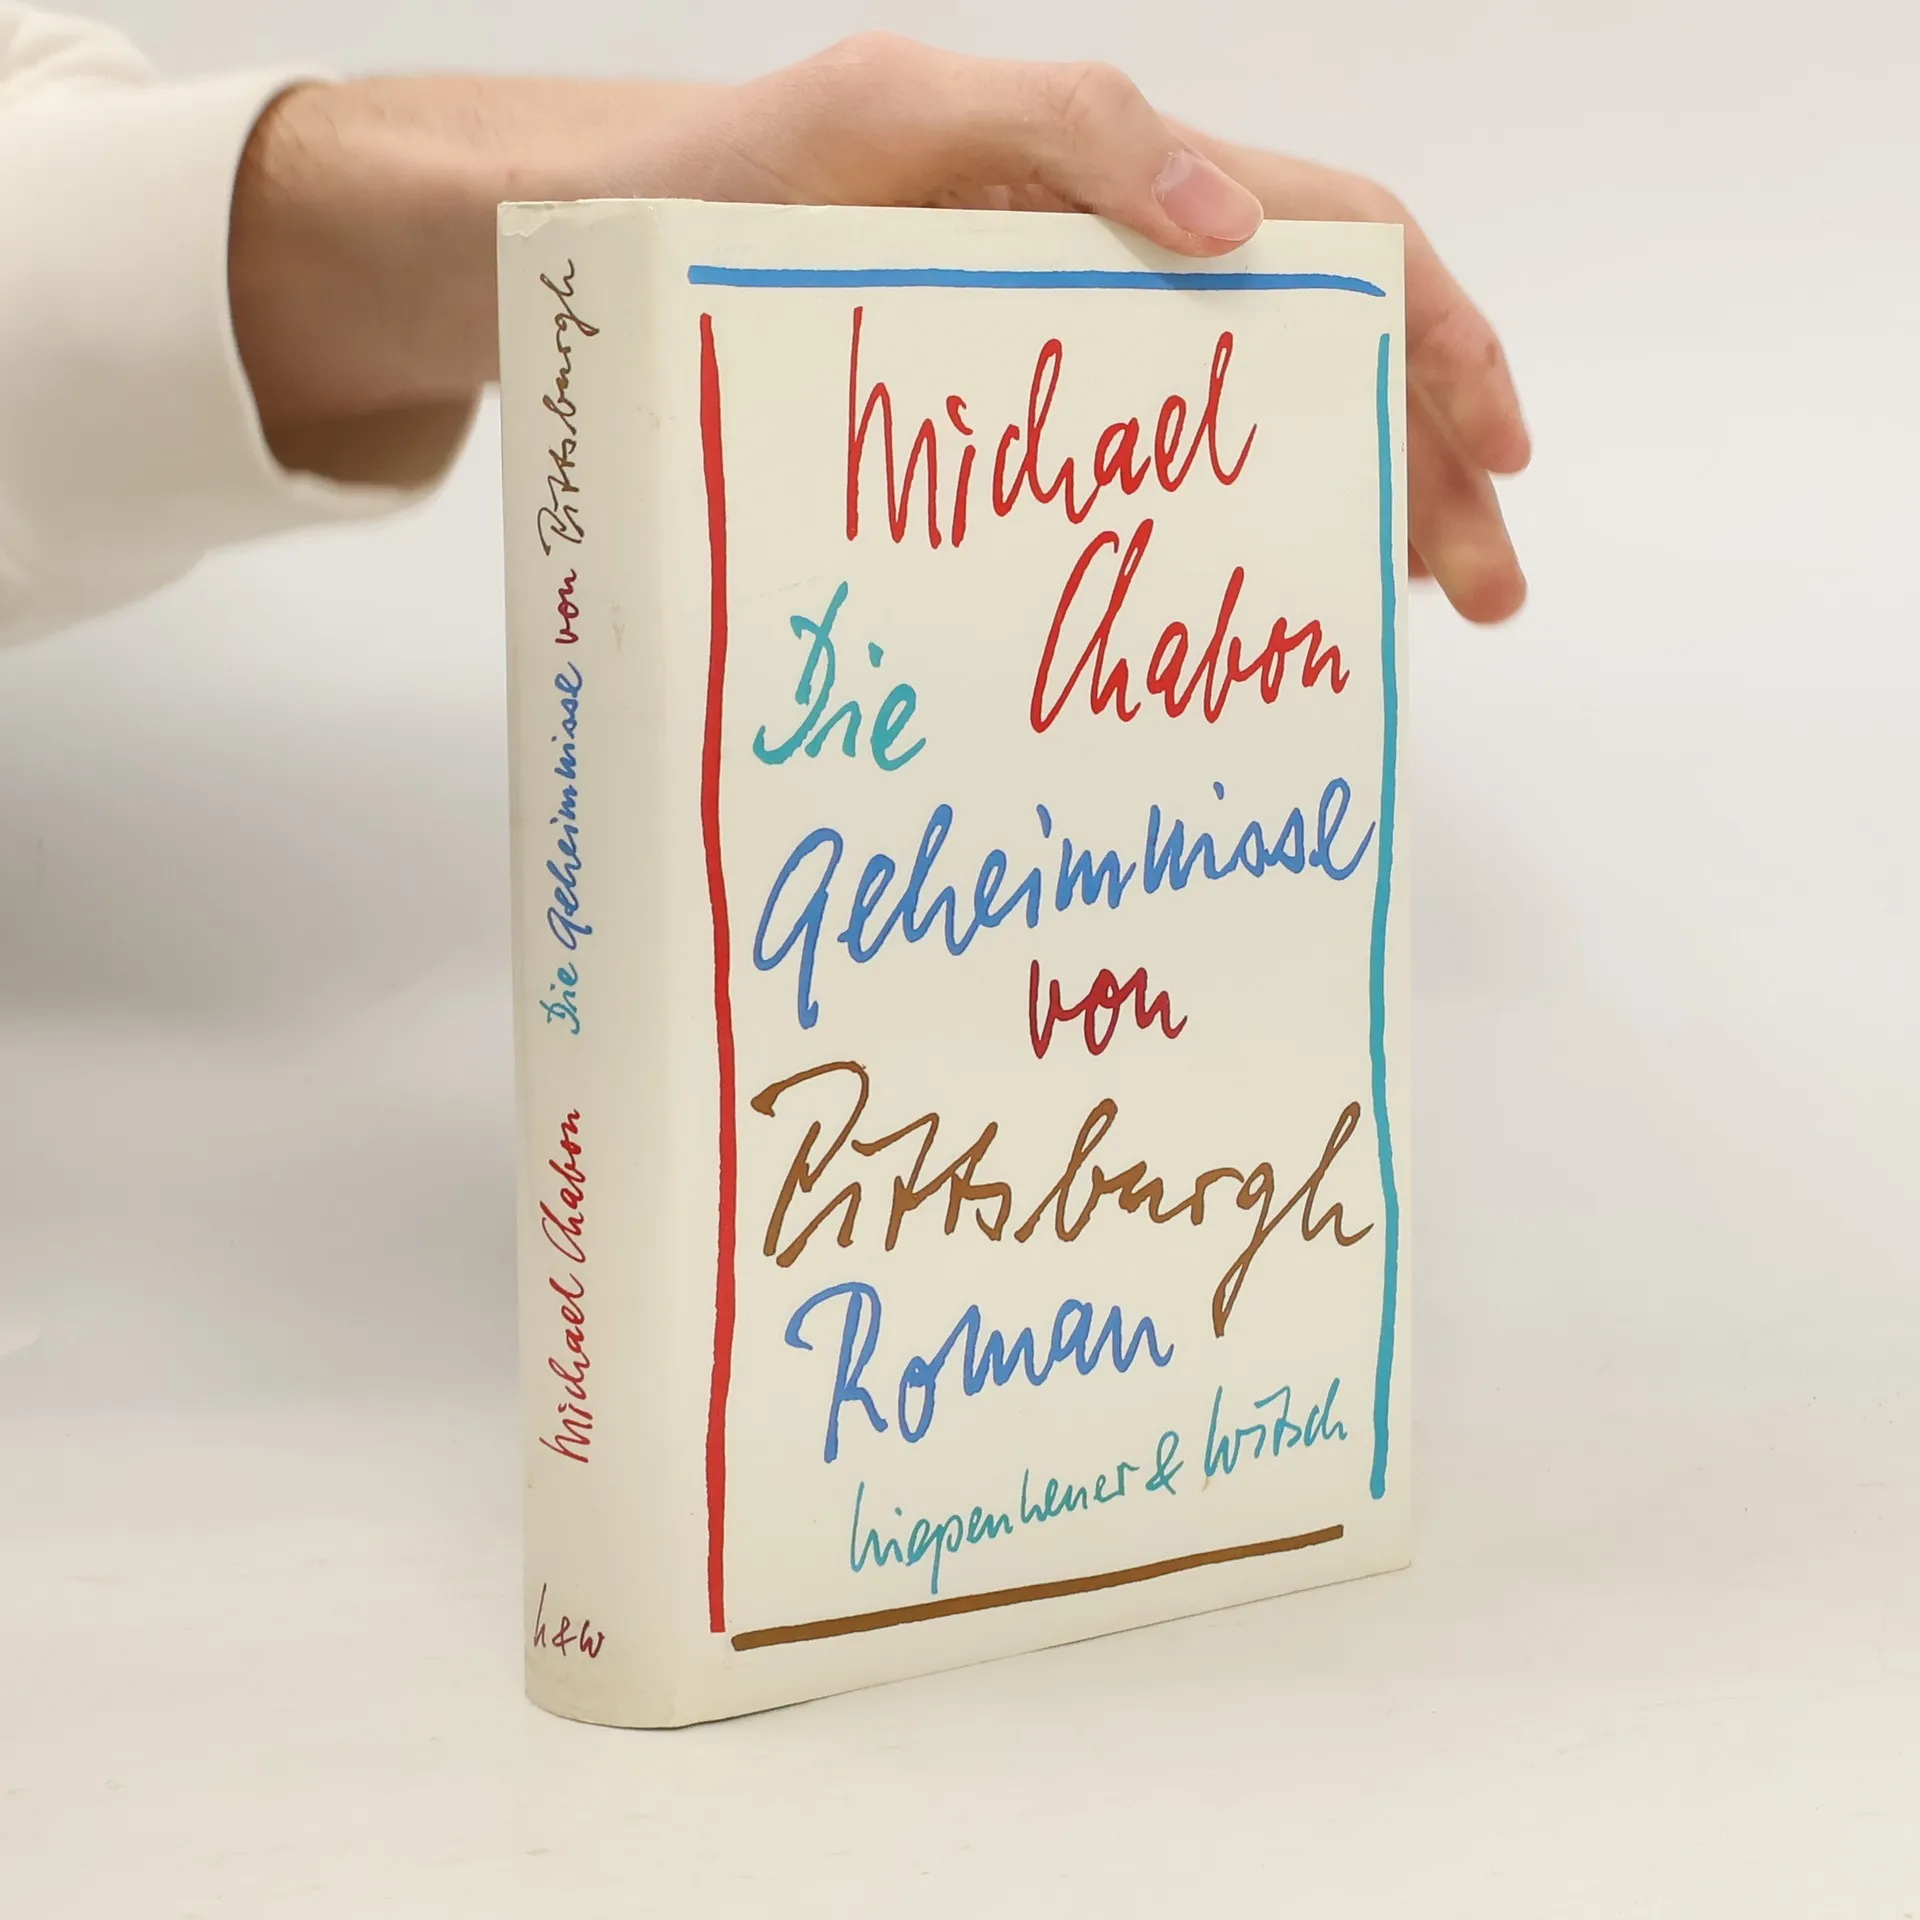 Michael Chabon Die Geheimnisse von Pittsburgh
k&w
Michael
Chabon
Die
Geheimnisse
von
Pittsburgh
Roman
kiepenheuer & witsch